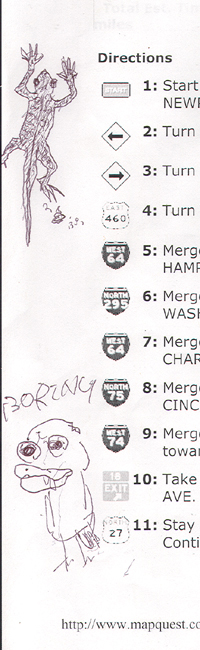 Directions
START 1: Start
NEWP
2: Turn
3: Turn
EAST 460 4: Turn
WEST 64 5: Merge
HAMP
NORTH 295 6: Merge
WASH
WEST 64 7: Merge
CHAR
BORING
NORTH 75 8: Merge
CINC
WEST 74 9: Merge
towar
16 EXIT 10: Take
AVE.
NORTH 27 11: Stay
Conti
http://www.mapquest.co